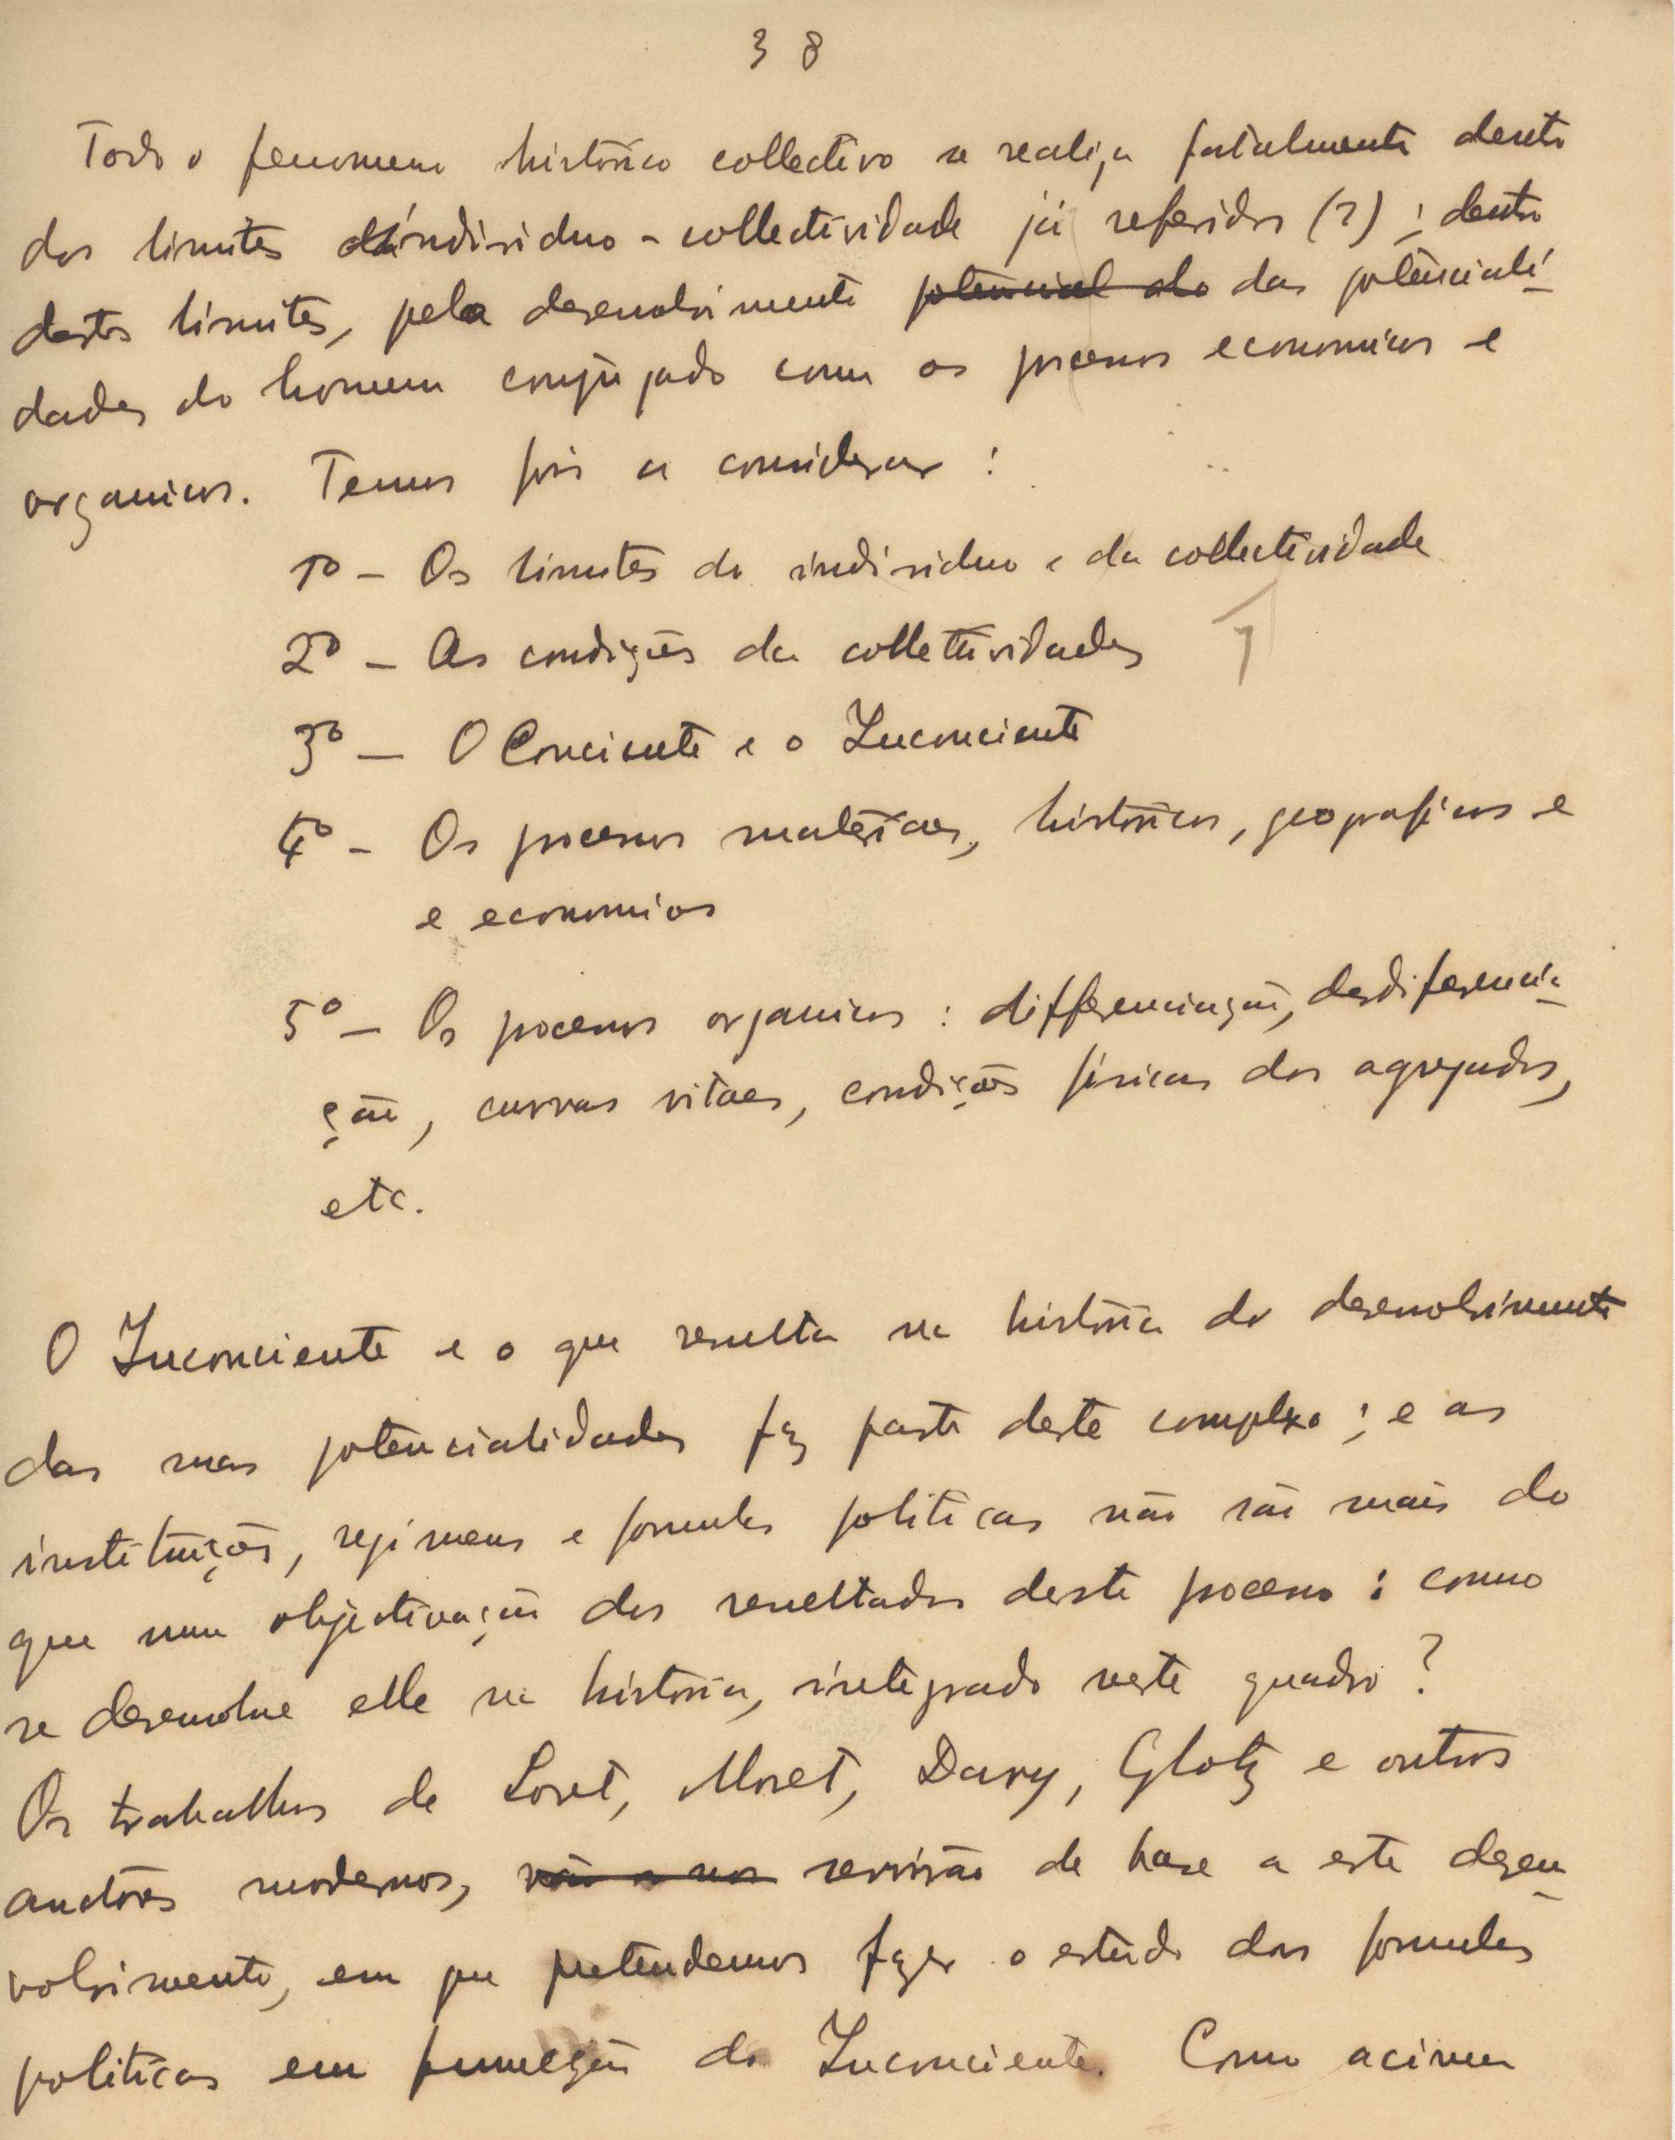 38
Todo o fenomeno histórico collectivo se realiza fatalmente dentro
dos limites individuo - collectividade já referidos (?) ; dentro
destes limites, pelo desenvolvimento potencial do das potenciali-
dades do homem conjugado com os processos economicos e
organicos. Temos pois a considerar :
1º - Os limites do individuo e da collectividade
2º - As condições da collectividades
3º - O Conciente e o Inconciente
4º - Os processos materiaes, históricos, geograficos e
e economios
5º - Os processos organicos : differenciação, desdiferencia-
ção, curvas vitaes, condições físicas dos agregados,
etc.
O Inconciente e o que resulta na história do desenvolvimento
das suas potencialidades faz parte deste complexo ; e as
instituições, regimens e formulas politicas não são mais do
que uma objectivação dos resultados deste processo : como
se desenvolve elle na história, integrado neste quadro ?
Os trabalhos de Loret, Moret, Davy, Glotz e outros
auctores modernos, vão a nos servirão de base a este desen-
volvimento, em que pretendemos fazer o estudo das formulas
politicas em funcção do Inconciente. Como acima